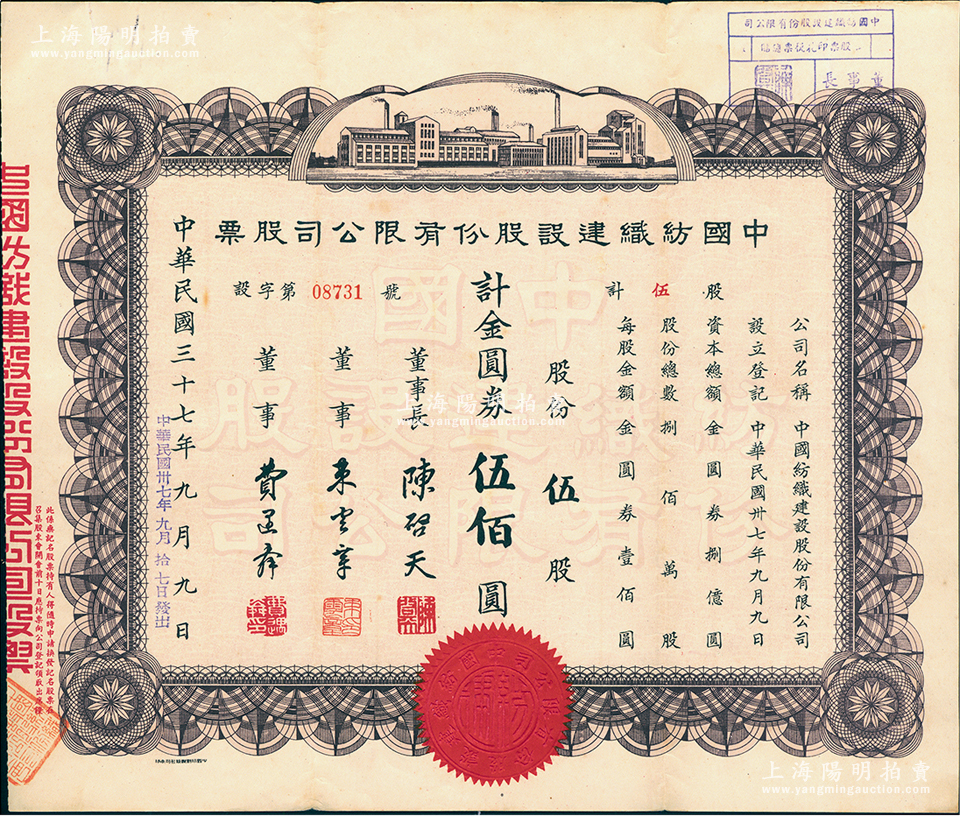 上海陽明拍賣
www.yangmingauction.com
中國紡織建設股份有限公司
股票印花稅票總貼
董事長
中國紡織建設股份有限公司股票
公司名稱 中國紡織建設股份有限公司
設立登記 中華民國卅七年九月九日
資本總額 金圓券捌億圓
股份總數 捌佰萬股
每股金額 金圓券壹佰圓
計伍股
股份 伍股
計金圓券伍佰圓
設字第08731號
董事長 陳啓天
董事 束雲章
董事
中華民國三十七年九月九日
中華民國卅七年九月拾七日發出
中國
紡織建設股
份有限公司
上海陽明拍賣
www.yangmingauction.com
中國紡織建設股份有限公司股票
此係無記名股票持有人得隨時申請換發記名股票在
召集股東會開會前十日應持票向公司登記領取出席證
上海陽明拍賣
www.yangmingauction.com